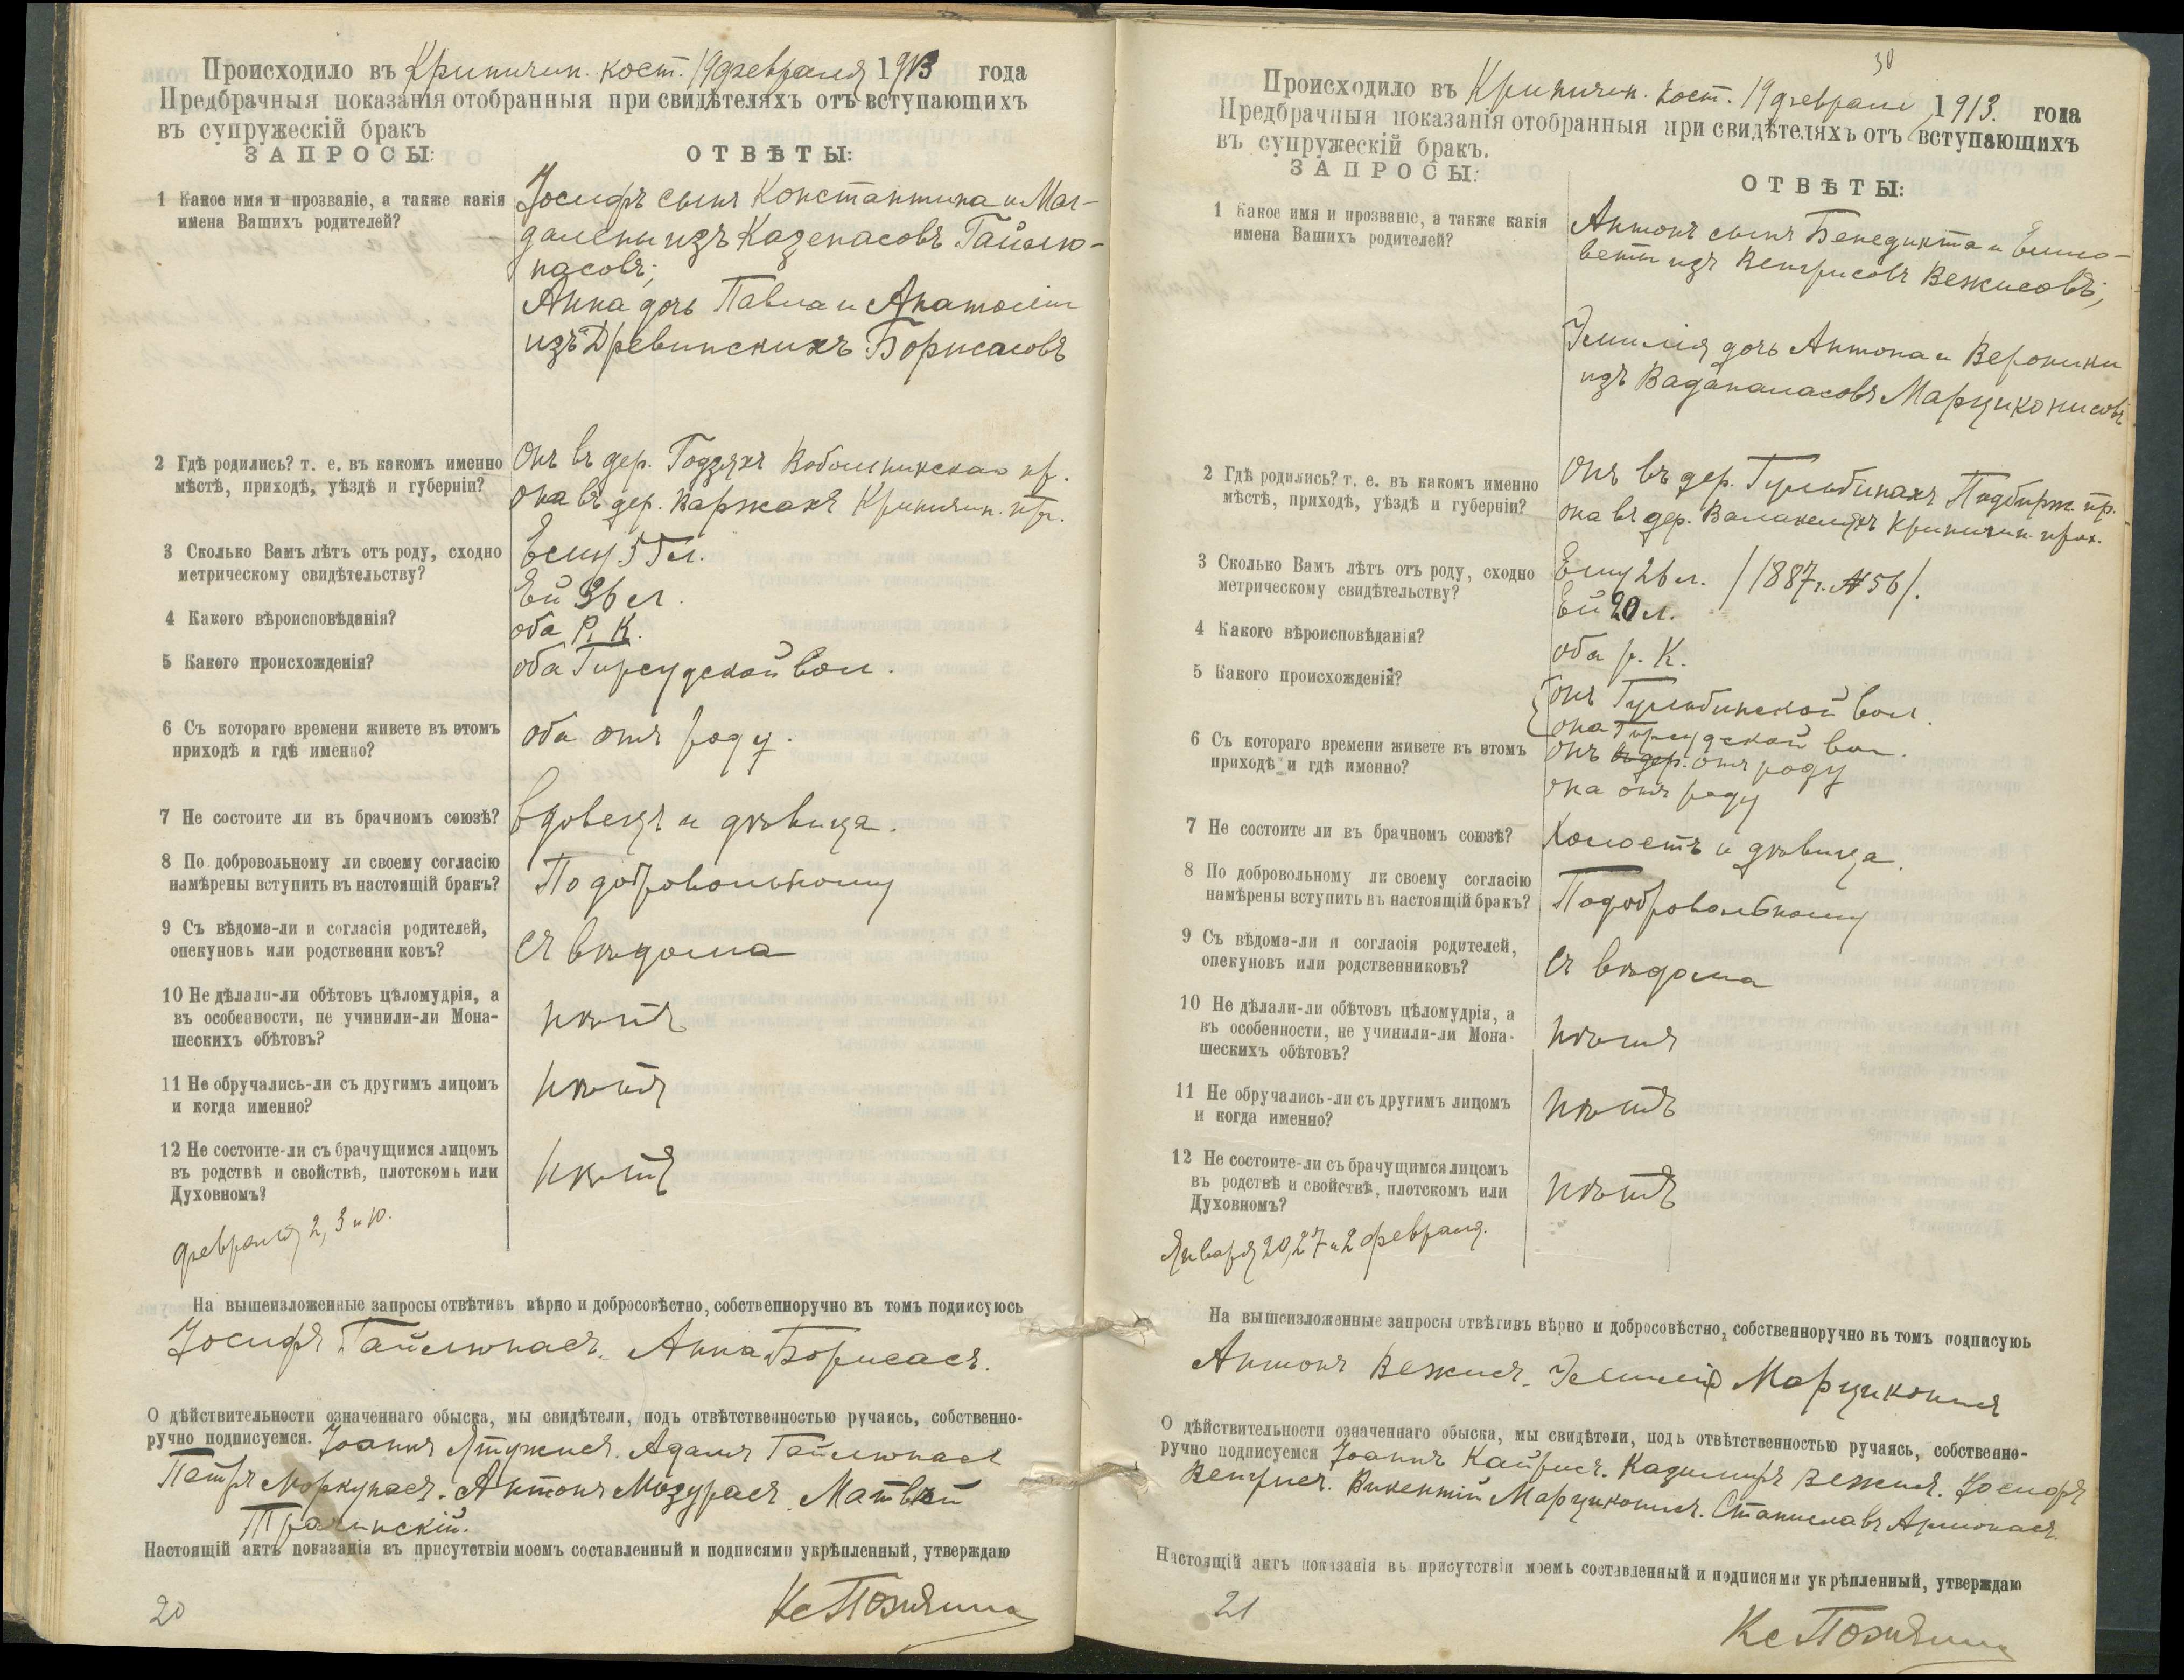 Происходило въ Криничин. кост. 19 февраля 1913 года
Предбрачныя показанія отобранныя при свидѣтеляхъ отъ вступающихъ
въ супружескій бракъ
ЗАПРОСЫ:
ОТВѢТЫ:
1 Какое имя и прозваніе, а также какія
имена Вашихъ родителей?
Іосифъ сынъ Константина и Маг-
далены изъ Казенасовъ Гайлю-
насовъ;
Анна дочь Павла и Анатоліи
изъ Древинскихъ Борисасовъ
2 Гдѣ родились? т. е. въ какомъ именно
мѣстѣ, приходѣ, уѣздѣ и губерніи?
Онъ въ дер. Годзяхъ Вобольникскаго пр.
она въ дер. Варжахъ Криничин. пр.
3 Сколько Вамъ лѣтъ отъ роду, сходно
метрическому свидѣтельству?
Ему 55 л.
Ей 36 л.
4 Какого вѣроисповѣданія?
оба Р. К.
5 Какого происхожденія?
оба Гирсудской вол.
6 Съ котораго времени живете въ этомъ
приходѣ и гдѣ именно?
оба отъ роду.
7 Не состоите ли въ брачномъ союзѣ?
вдовецъ и дѣвица.
8 По добровольному ли своему согласію
намѣрены вступить въ настоящій бракъ?
По добровольному
9 Съ вѣдома-ли и согласія родителей,
опекуновъ или родственни ковъ?
съ вѣдома
10 Не дѣлали-ли обѣтовъ цѣломудрія, а
въ особенности, не учинили-ли Мона-
шескихъ обѣтовъ?
нѣтъ
11 Не обручались-ли съ другимъ лицомъ
и когда именно?
нѣтъ
12 Не состоите-ли съ брачущимся лицомъ
въ родствѣ и свойствѣ, плотскомъ или
Духовномъ?
нѣтъ
февраля 2, 3 и 10.
На вышеизложенные запросы отвѣтивъ вѣрно и добросовѣстно, собственноручно въ томъ подписуюсь
Іосифъ Гайлюнасъ. Анна Борисасъ.
О дѣйствительности означеннаго обыска, мы свидѣтели, подъ отвѣтственностью ручаясь, собственно-
ручно подписуемся. Іоаннъ Ятужисъ. Адамъ Гайлюнасъ
Петръ Моркунасъ. Антонъ Мозурасъ. Матвѣй
Трачинскій.
Настоящій актъ показанія въ присутствіи моемъ составленный и подписями укрѣпленный, утверждаю
Кс
20
30
Происходило въ Криничин. кост. 19 февраля 1913. года
Предбрачныя показанія отобранныя при свидѣтеляхъ отъ вступающихъ
въ супружескій бракъ.
ЗАПРОСЫ:
ОТВѢТЫ:
1 Какое имя и прозваніе, а также какія
имена Вашихъ родителей?
Антонъ сынъ Бенедикта и Елиса-
веты изъ Венгрисовъ Вежисовъ;
Эмилія дочь Антона и Вероники
изъ Вадапаласовъ Марциконисовъ
2 Гдѣ родились? т. е. въ какомъ именно
мѣстѣ, приходѣ, уѣздѣ и губерніи?
Онъ въ дер. Гульбинахъ Подбирж. пр.
она въ дер. Криничин. прих.
3 Сколько Вамъ лѣтъ отъ роду, сходно
метрическому свидѣтельству?
Ему 26 л. /1887 г. № 56/.
Ей 20 л.
4 Какого вѣроисповѣданія?
оба р. К.
5 Какого происхожденія?
онъ Гульбинской вол.
она Гирсудской вол.
6 Съ котораго времени живете въ этомъ
приходѣ и гдѣ именно?
онъ въ дер. отъ роду
она отъ роду
7 Не состоите ли въ брачномъ союзѣ?
Холостъ и дѣвица.
8 По добровольному ли своему согласію
намѣрены вступить въ настоящій бракъ?
По добровольному
9 Съ вѣдома-ли и согласія родителей,
опекуновъ или родственниковъ?
съ вѣдома
10 Не дѣлали-ли обѣтовъ цѣломудрія, а
въ особенности, не учинили-ли Мона-
шескихъ обѣтовъ?
нѣтъ
11 Не обручались-ли съ другимъ лицомъ
и когда именно?
нѣтъ
12 Не состоите-ли съ брачущимся лицомъ
въ родствѣ и свойствѣ, плотскомъ или
Духовномъ?
нѣтъ
Января 20, 27 и 2 февраля.
На вышеизложенные запросы отвѣтивъ вѣрно и добросовѣстно, собственноручно въ томъ подписуюь
Антонъ Вежисъ. Эмилія Марциконисъ
О дѣйствительности означеннаго обыска, мы свидѣтели, подъ отвѣтственностью ручаясь, собственно-
ручно подписуемся Іоаннъ Кайрисъ. Казимиръ Вежисъ. Іосифъ
Венгрисъ. Викентій Марциконисъ. Станиславъ Армонасъ.
Настоящій актъ показанія въ присутствіи моемъ составленный и подписями укрѣпленный, утверждаю
Кс
21